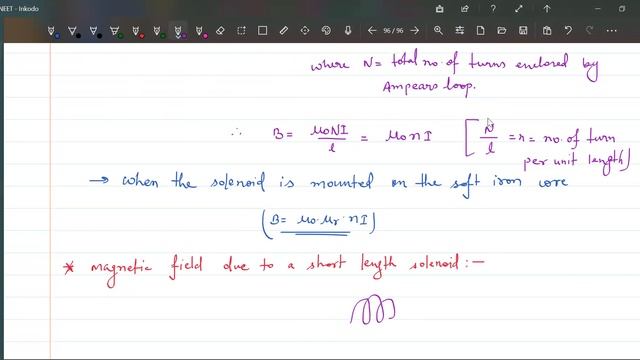 NEET - Inkodo
96 / 96
where N = total no. of turns enclored by
Ampears loop.
∴ B = μ₀NI/l = μ₀nI [N/l = n = no. of turn
per unit length]
→ when the solenoid is mounted on the soft iron core
(B = μ₀·μr·nI)
* magnetic field due to a short length solenoid :-